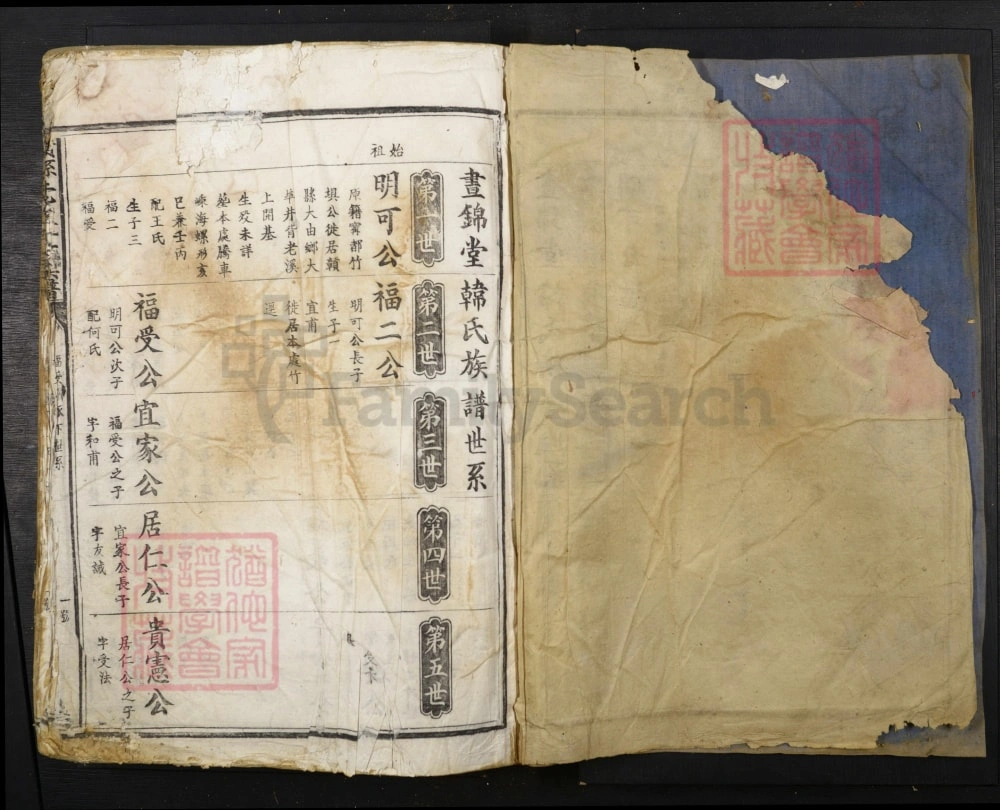 晝錦堂韓氏族譜世系
第一世
第二世
第三世
第四世
第五世
始祖
明可公
原籍寧都竹
垻公徙居贛
縣大由鄉大
車井背老溪
上開基
生歿未詳
墓本處騰車
崠海螺形亥
巳兼壬丙
配王氏
生子三
福二
福受
福二公
明可公長子
生子一
宜甫
徙居本處竹
逕
福受公
明可公次子
配何氏
宜家公
福受公之子
字和甫
居仁公
宜家公長子
字友誠
貴憲公
居仁公之子
字受法
FamilySearch
譜學會